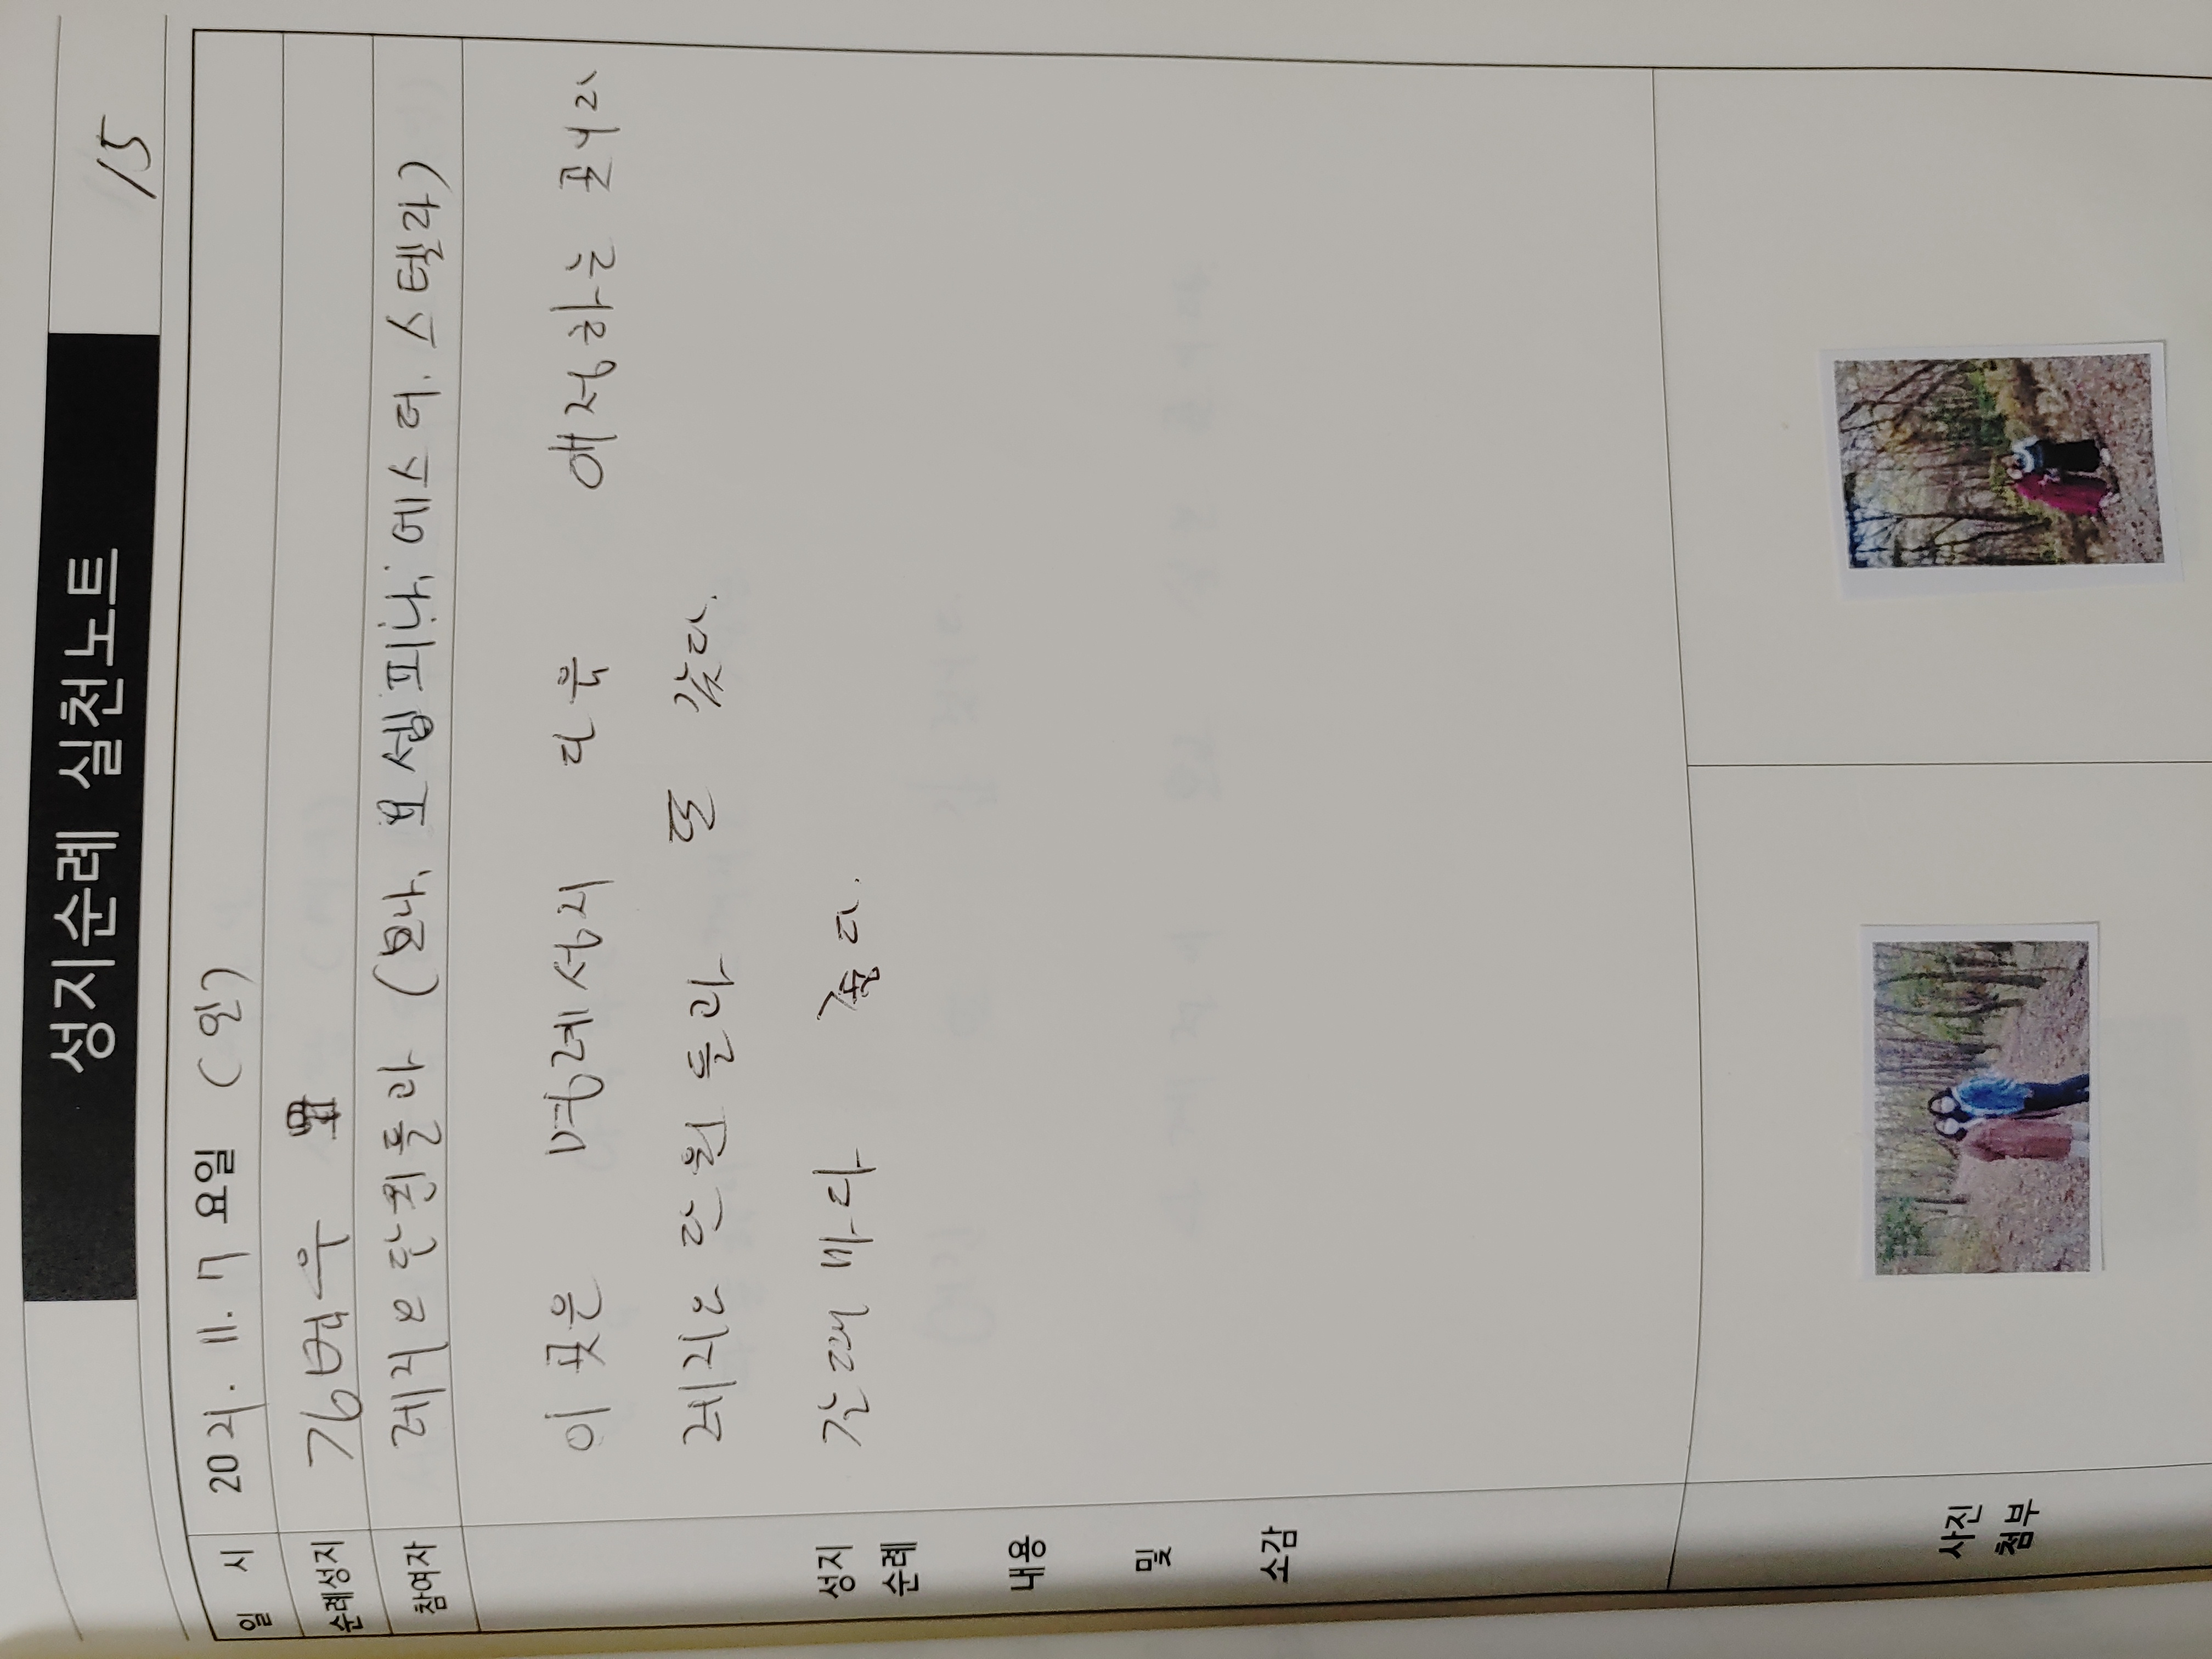 성지순례 실천노트
115
일 시 2021. 11. 7 요일 (일)
순례성지
참여자 레지오 단원들과 (모나, 요셉피나, 에스더. 스텔라)
이 곳은 명례성지 다음 애정하는 곳이라
레지오 단원 들과 또 갔다.
갈때 마다 좋다.
성지
순례
내용
및
소감
사진
첨부